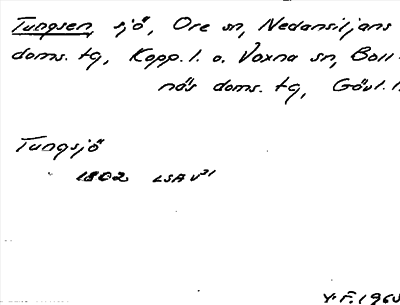 Tungsen, sjö, Ore sn, Nedansiljans
doms. tg, Kopp. l. o. Voxna sn, Boll-
näs doms. tg, Gävl. l.
Tungsjö
1802 LSA V31
Y. F. 1960